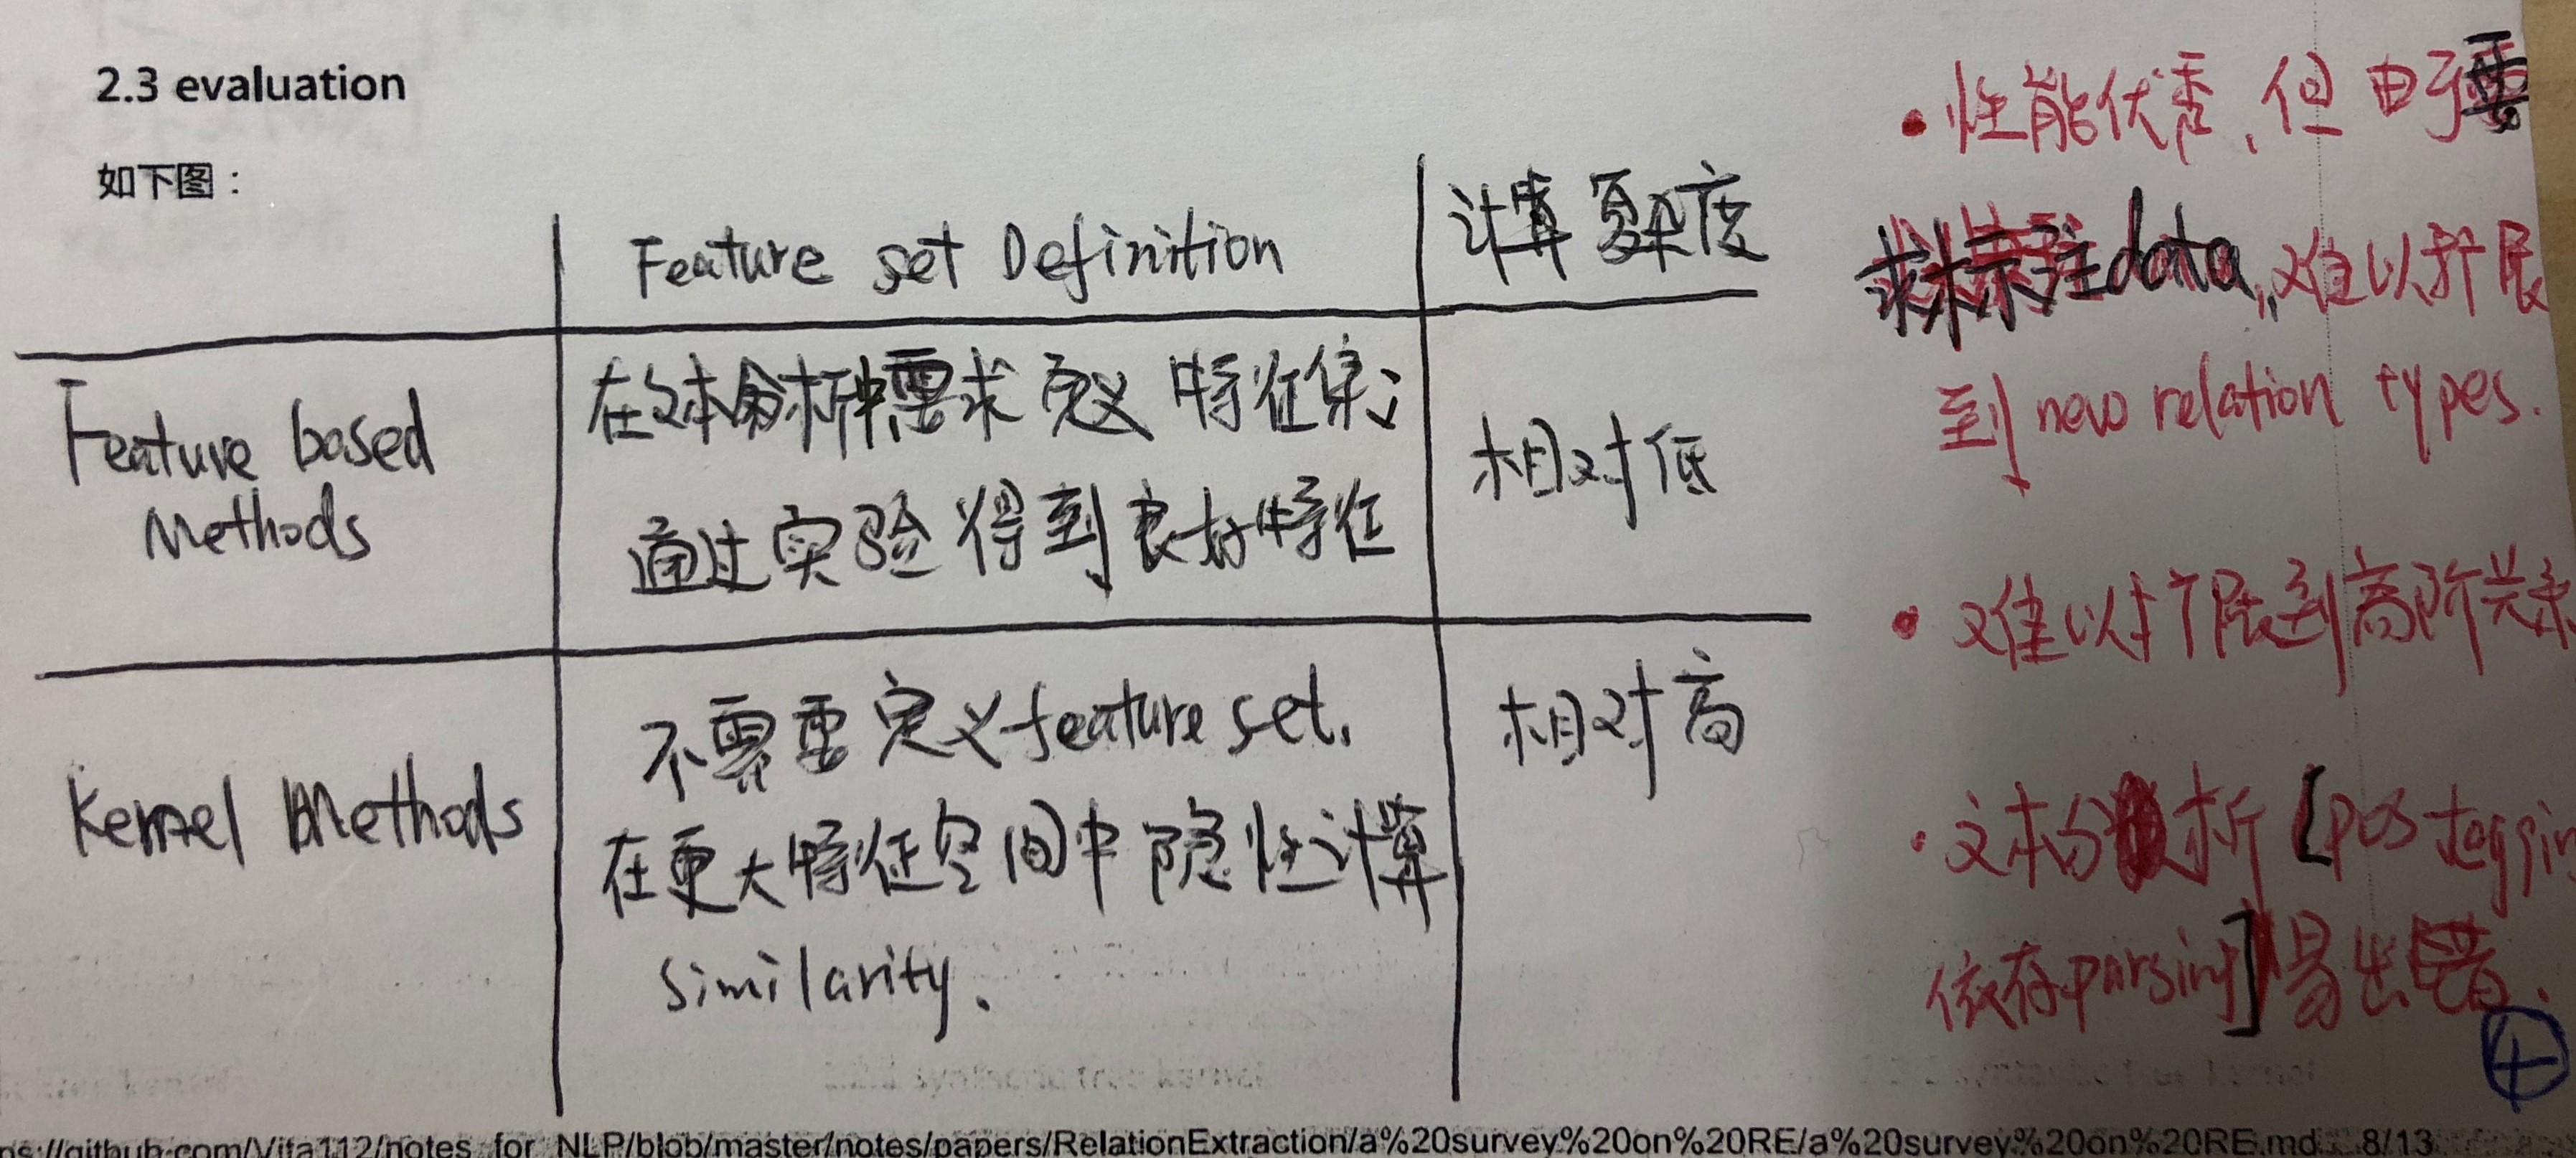 2.3 evaluation
如下图：
Feature set Definition
计算复杂度
Feature based
Methods
在文本分析中需求定义特征集；
通过实验得到良好特征
相对低
Kernel Methods
不需要定义feature set.
在更大特征空间中隐性计算
similarity.
相对高
• 性能优秀,但由于要
求标注data,难以扩展
到new relation types.
• 难以扩展到高阶关系
• 文本分析[pos taggin
依存parsing]易出错.
ps://github.com/Vifa112/notes_for_NLP/blob/master/notes/papers/RelationExtraction/a%20survey%20on%20RE/a%20survey%20on%20RE.md 8/13